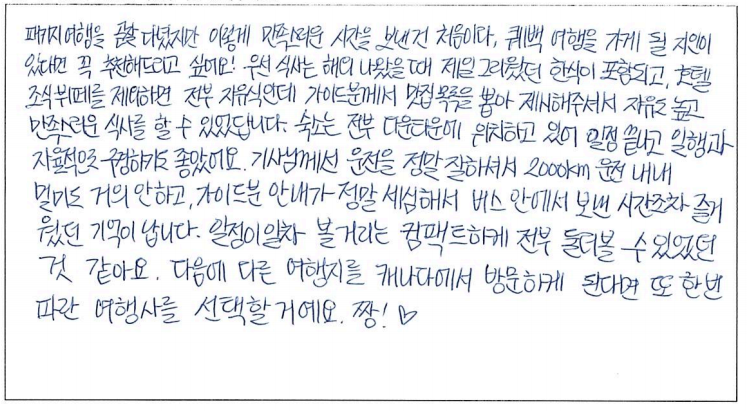 패키지여행을 곧잘 다녔지만 이렇게 만족스러운 시간을 보낸건 처음이다, 퀘백 여행을 가게 될 지인이
있다면 꼭 추천해드리고 싶어요! 우선 식사는 해외 나왔을 때 제일 그리웠던 한식이 포함되고, 호텔
조식뷔페를 제외하면 전부 자유식인데 가이드분께서 맛집목록을 뽑아 제시해주셔서 자유도 높고
만족스러운 식사를 할 수 있었답니다. 숙소는 전부 다운타운에 위치하고 있어 일정 끝나고 일행과
자율적으로 구경하기도 좋았어요. 기사님께선 운전을 정말 잘하셔서 2000km 운전 내내
멀미도 거의 안하고, 가이드분 안내가 정말 세심해서 버스 안에서 보낸 시간조차 즐거
웠던 기억이 납니다. 일정이 알차 볼거리는 컴팩트하게 전부 둘러볼 수 있었던
것 같아요. 다음에 다른 여행지를 캐나다에서 방문하게 된다면 또 한번
파란 여행사를 선택할거예요. 짱! ♡